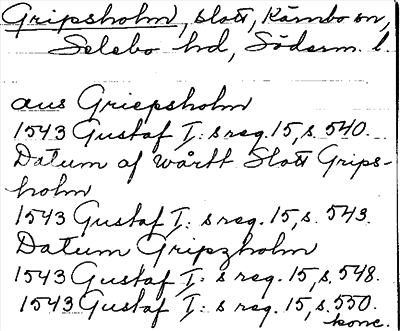 Gripsholm, slott, Kärnbo sn,
Selebo hd, Söderm. l.
aus Griepsholm
1543 Gustaf I: s reg. 15, s. 540.
Datum af wårtt Slott Grips-
holm
1543 Gustaf I: s reg. 15, s. 543.
Datum Gripzholm
1543 Gustaf I: s reg. 15, s. 548.
1543 Gustaf I: s reg. 15, s. 550.
konc.